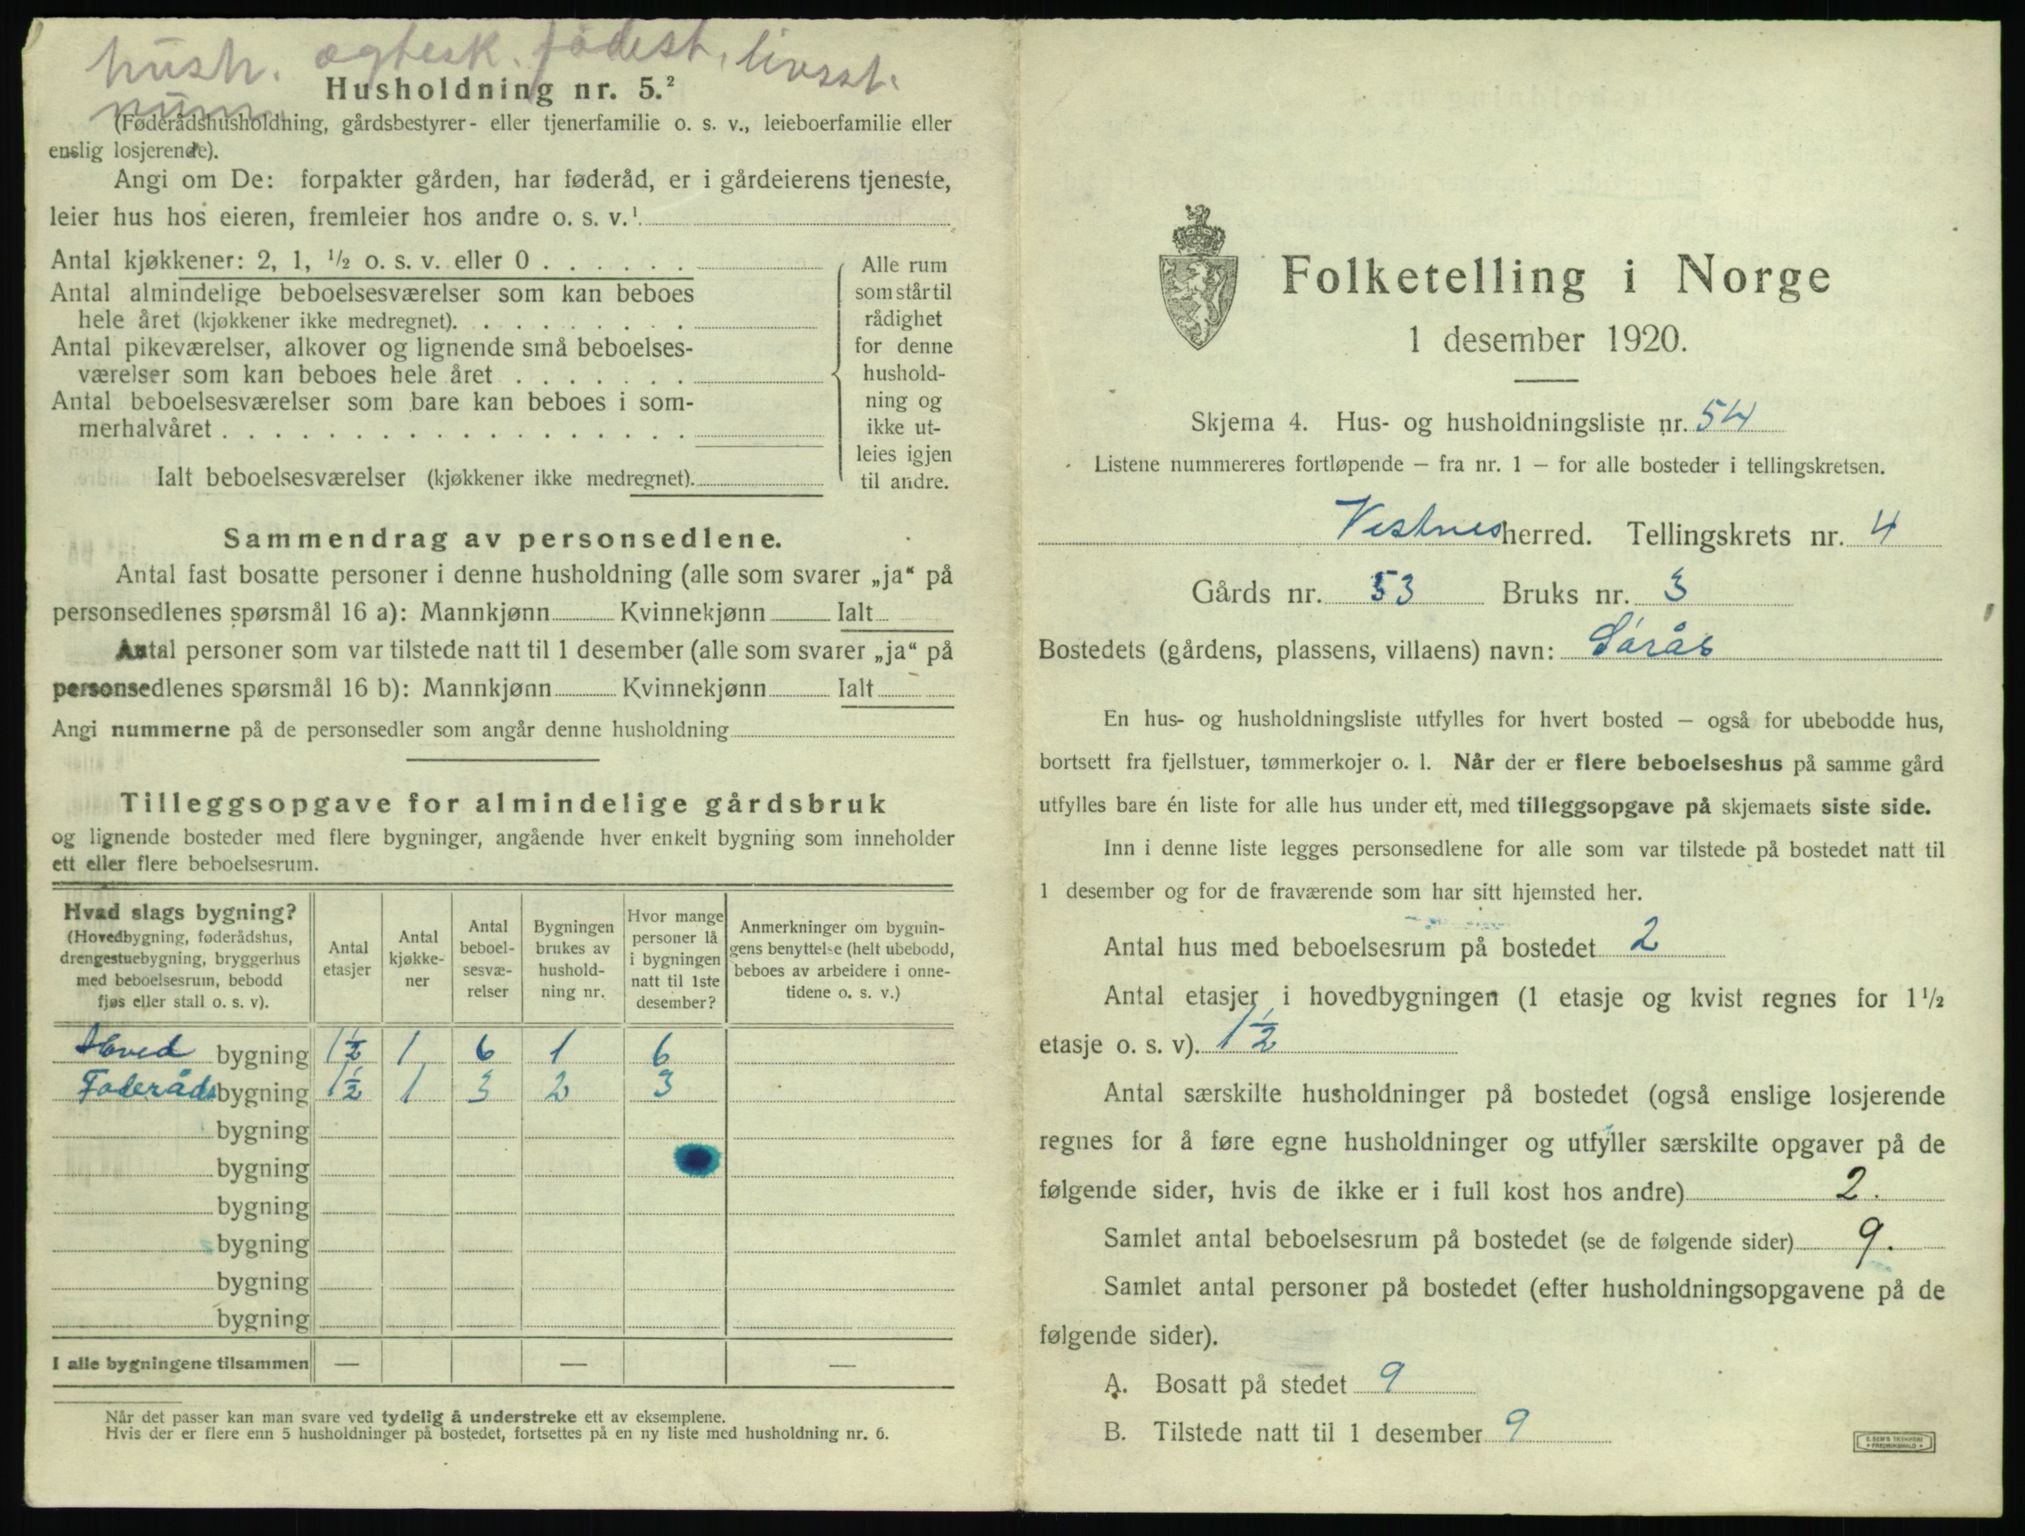 hush. ægtesk. fødest. livsst.
num.
Husholdning nr. 5.²
(Føderådshusholdning, gårdsbestyrer- eller tjenerfamilie o. s. v., leieboerfamilie eller
enslig losjerende).
Angi om De: forpakter gården, har føderåd, er i gårdeierens tjeneste,
leier hus hos eieren, fremleier hos andre o. s. v.¹
Antal kjøkkener: 2, 1, ½ o. s. v. eller 0 . . . . . .
Antal almindelige beboelsesværelser som kan beboes
hele året (kjøkkener ikke medregnet). . . . . . . . .
Antal pikeværelser, alkover og lignende små beboelses-
værelser som kan beboes hele året . . . . . . .
Antal beboelsesværelser som bare kan beboes i som-
merhalvåret . . . . . . . . . . . . . . . . . .
Ialt beboelsesværelser (kjøkkener ikke medregnet).
Alle rum
som står til
rådighet
for denne
hushold-
ning og
ikke ut-
leies igjen
til andre.
Sammendrag av personsedlene.
Antal fast bosatte personer i denne husholdning (alle som svarer „ja“ på
personsedlenes spørsmål 16 a): Mannkjønn Kvinnekjønn Ialt
Antal personer som var tilstede natt til 1 desember (alle som svarer „ja“ på
personsedlenes spørsmål 16 b): Mannkjønn Kvinnekjønn Ialt
Angi nummerne på de personsedler som angår denne husholdning
Tilleggsopgave for almindelige gårdsbruk
og lignende bosteder med flere bygninger, angående hver enkelt bygning som inneholder
ett eller flere beboelsesrum.
Hvad slags bygning?
(Hovedbygning, føderådshus,
drengestuebygning, bryggerhus
med beboelsesrum, bebodd
fjøs eller stall o. s. v).
Antal
etasjer
Antal
kjøkke-
ner
Antal
beboel-
sesvæ-
relser
Bygningen
brukes av
hushold-
ning nr.
Hvor mange
personer lå
i bygningen
natt til 1ste
desember?
Anmerkninger om bygnin-
gens benyttelse (helt ubebodd,
beboes av arbeidere i onne-
tidene o. s. v.)
Hoved bygning 1½ 1 6 1 6
Føderåds bygning 1½ 1 3 2 3
bygning
bygning
bygning
bygning
bygning
bygning
I alle bygningene tilsammen — — —
Når det passer kan man svare ved tydelig å understreke ett av eksemplene.
Hvis der er flere enn 5 husholdninger på bostedet, fortsettes på en ny liste med husholdning nr. 6.
Folketelling i Norge
1 desember 1920.
Skjema 4. Hus- og husholdningsliste nr. 54
Listene nummereres fortløpende – fra nr. 1 – for alle bosteder i tellingskretsen.
Vestnes herred. Tellingskrets nr. 4
Gårds nr. 53 Bruks nr. 3
Bostedets (gårdens, plassens, villaens) navn: Sørås
En hus- og husholdningsliste utfylles for hvert bosted – også for ubebodde hus,
bortsett fra fjellstuer, tømmerkojer o. l. Når der er flere beboelseshus på samme gård
utfylles bare én liste for alle hus under ett, med tilleggsopgave på skjemaets siste side.
Inn i denne liste legges personsedlene for alle som var tilstede på bostedet natt til
1 desember og for de fraværende som har sitt hjemsted her.
Antal hus med beboelsesrum på bostedet 2
Antal etasjer i hovedbygningen (1 etasje og kvist regnes for 1½
etasje o. s. v). 1½
Antal særskilte husholdninger på bostedet (også enslige losjerende
regnes for å føre egne husholdninger og utfyller særskilte opgaver på de
følgende sider, hvis de ikke er i full kost hos andre) 2.
Samlet antal beboelsesrum på bostedet (se de følgende sider) 9.
Samlet antal personer på bostedet (efter husholdningsopgavene på de
følgende sider).
A. Bosatt på stedet 9
B. Tilstede natt til 1 desember 9